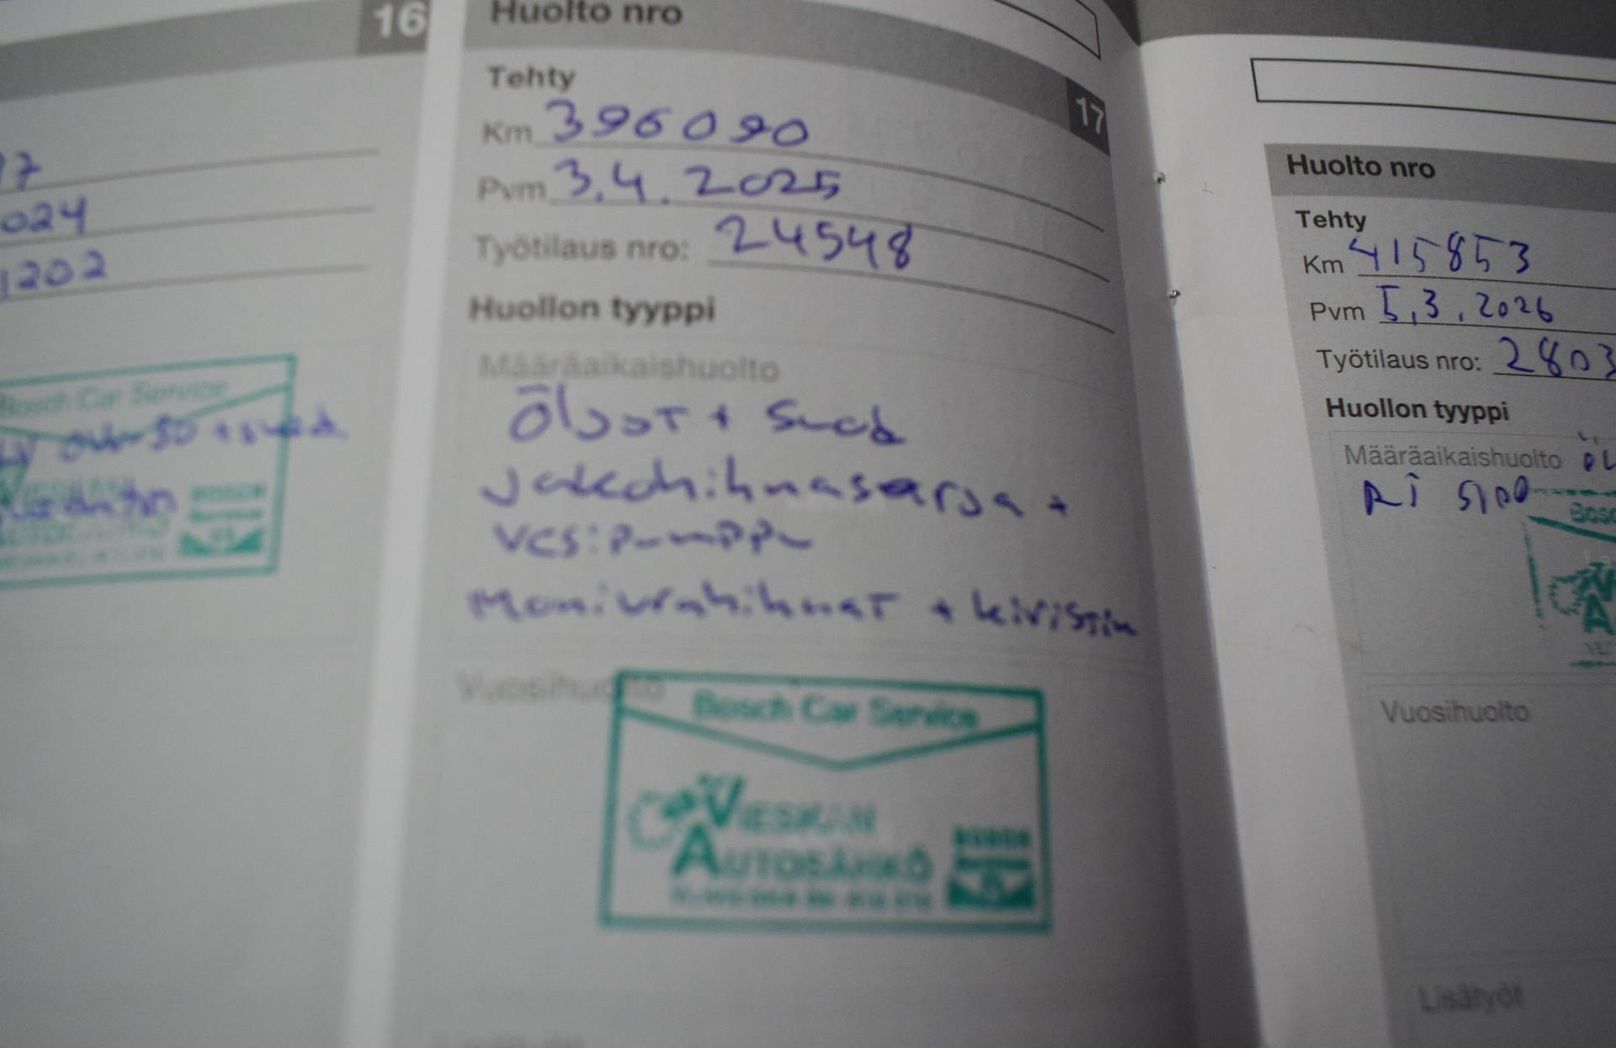 16
024
1202
Bosch Car Service
Huolto nro
17
Tehty
Km 396090
Pvm 3.4.2025
Työtilaus nro: 24548
Huollon tyyppi
Määräaikaishuolto
Öljyt + Suod
Jakohihnasarja +
vesipumppu
Moniurahihnat + kiristin
Vuosihuolto
Bosch Car Service
VIESKAN
AUTOSÄHKÖ
BOSCH
Service
Huolto nro
Tehty
Km 415853
Pvm 5.3.2026
Työtilaus nro: 2803
Huollon tyyppi
Määräaikaishuolto
Vuosihuolto
Lisätyöt